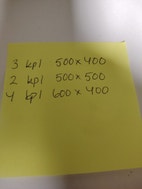 3 kpl 500x400
2 kpl 500x500
4 kpl 600x400